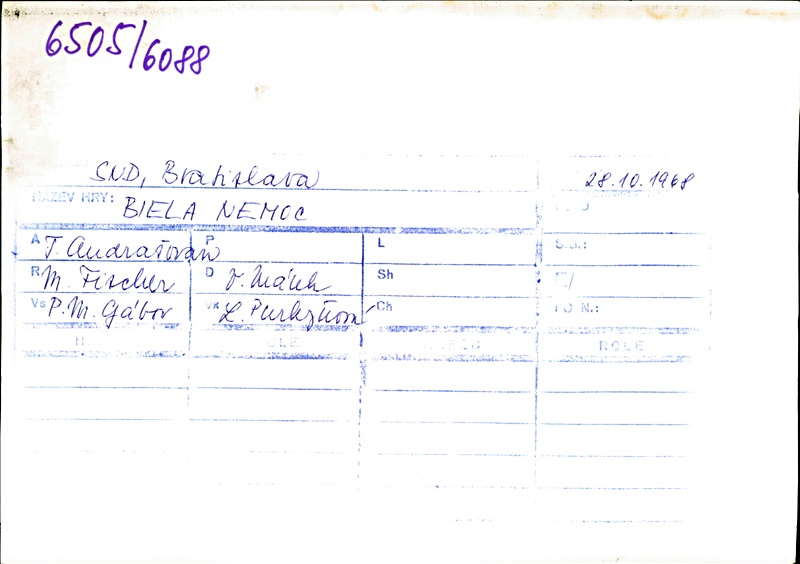 6505/6088
SND, Bratislava 28.10.1968
NÁZEV HRY: BIELA NEMOC
A T. Andrašovan P L S.ú.:
R M. Fischer D Sh
Vs P. M. Gábor Vk L. Purkyňová Ch
ROLE